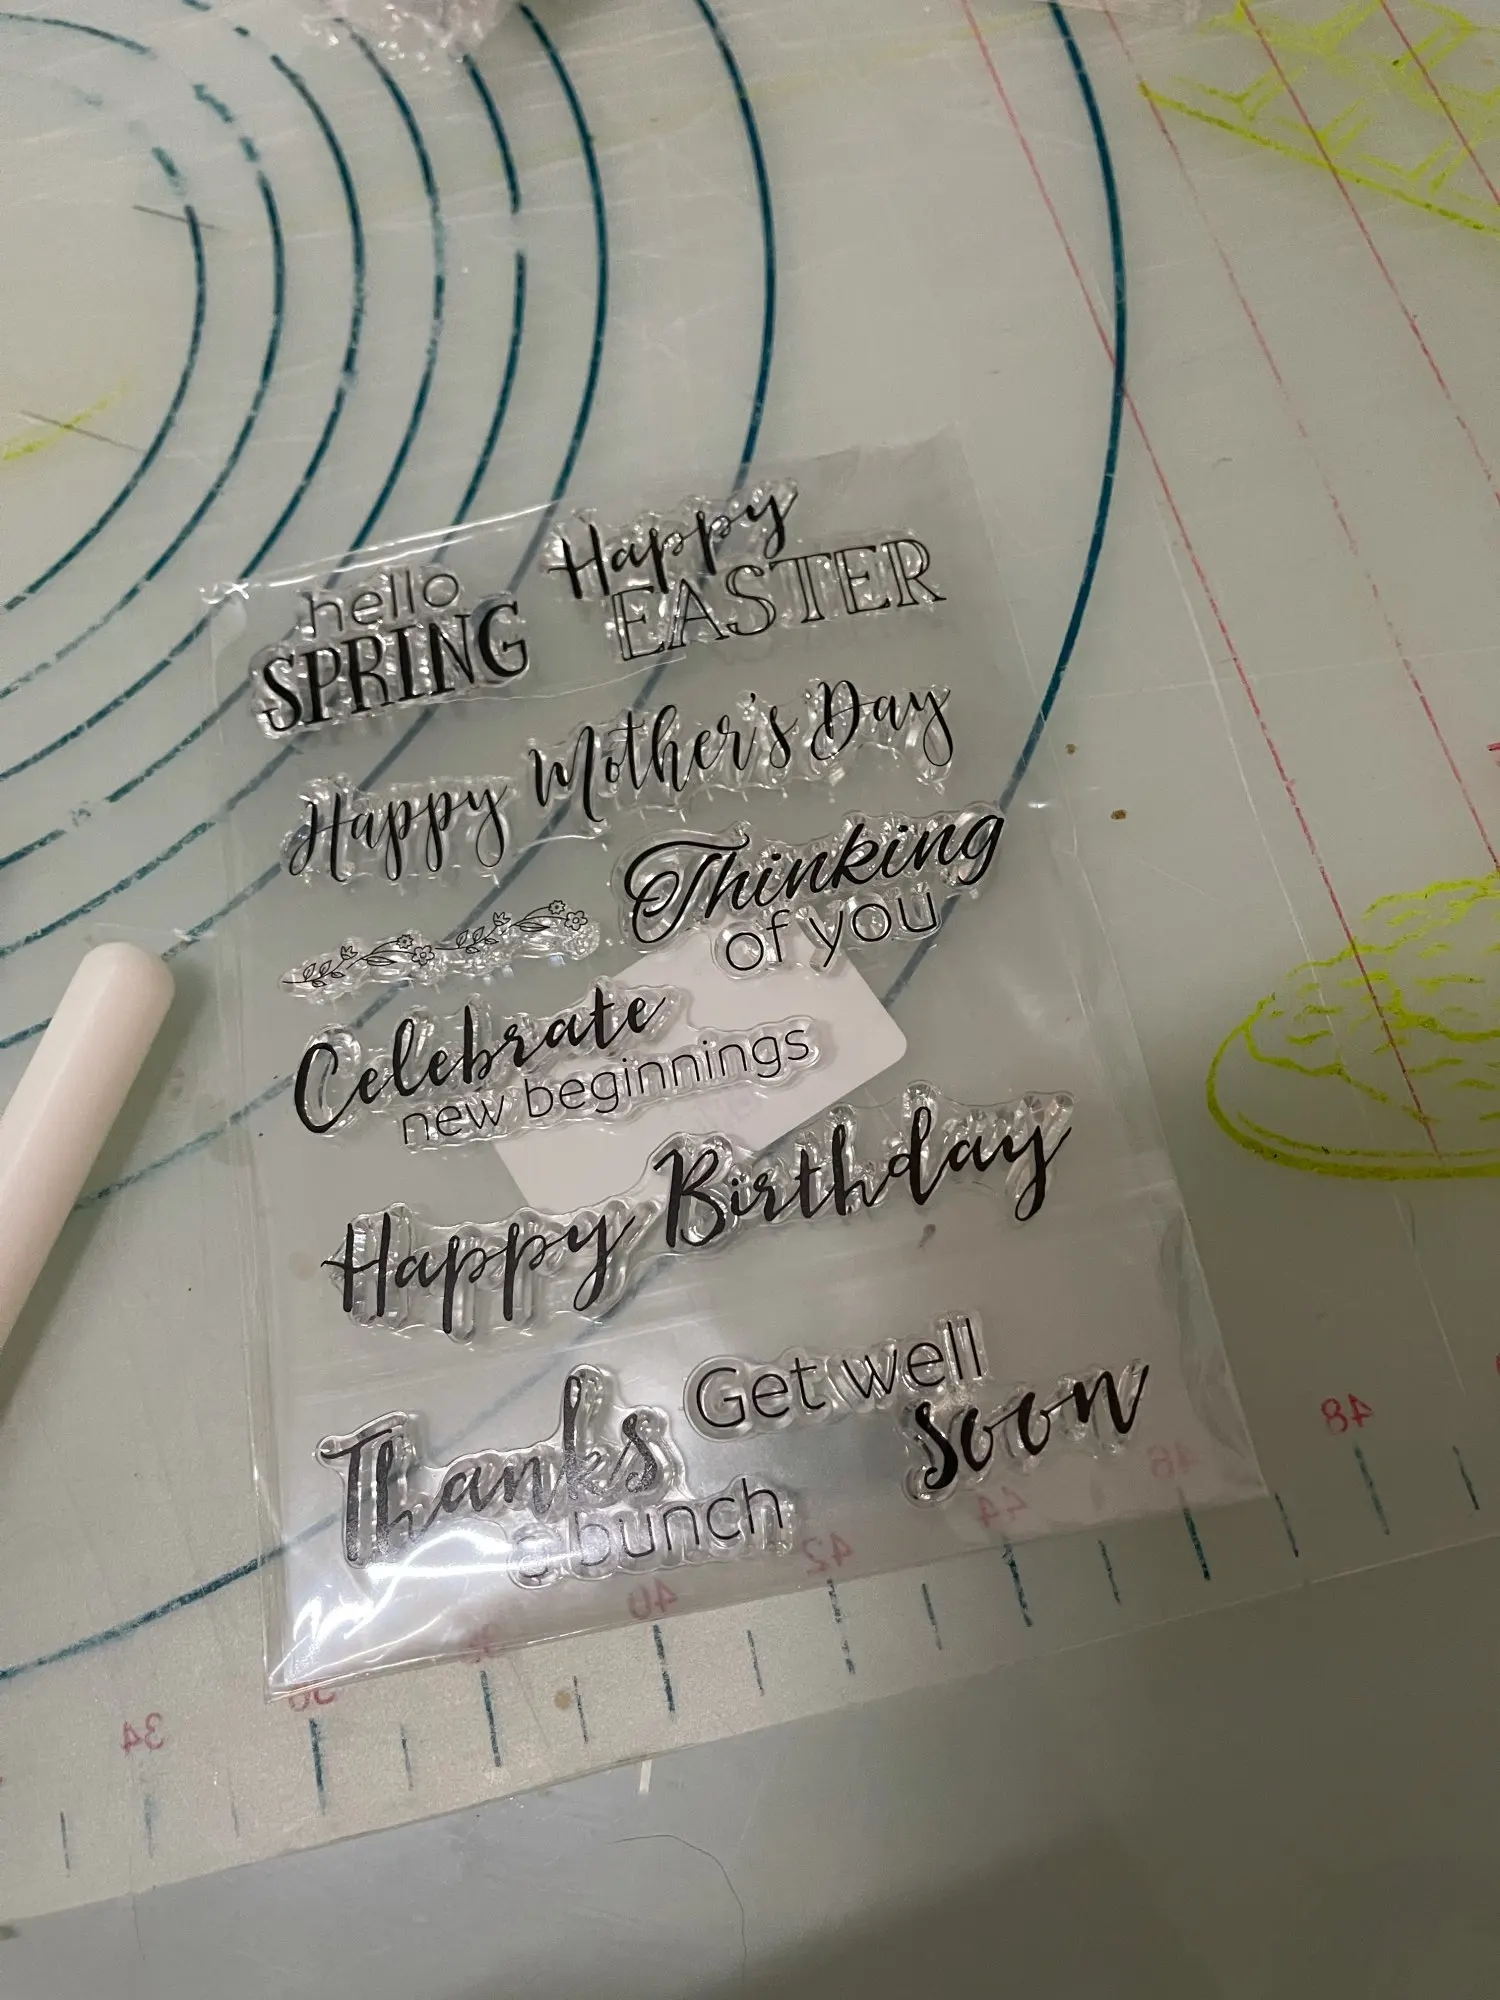 hello
SPRING
Happy
EASTER
Happy Mother's Day
Thinking
of you
Celebrate
new beginnings
Happy Birthday
Get well
soon
Thanks
a bunch
34
36
38
40
42
44
46
48